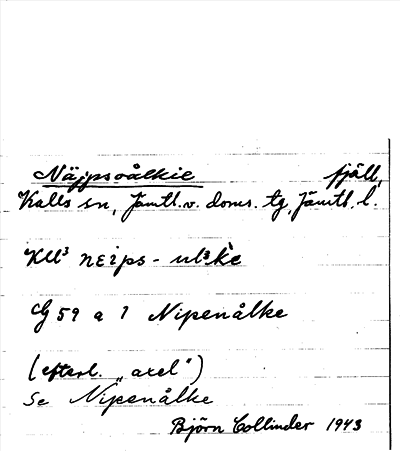 Näjpsoålkie fjäll,
Kalls sn, Jämtl. v. doms. tg, Jämtl. l.
KU³ nɛips - ul³kè
G 59 a 1 Nipenålke
(efterl. „axel")
Se Nipenålke
Björn Collinder 1943